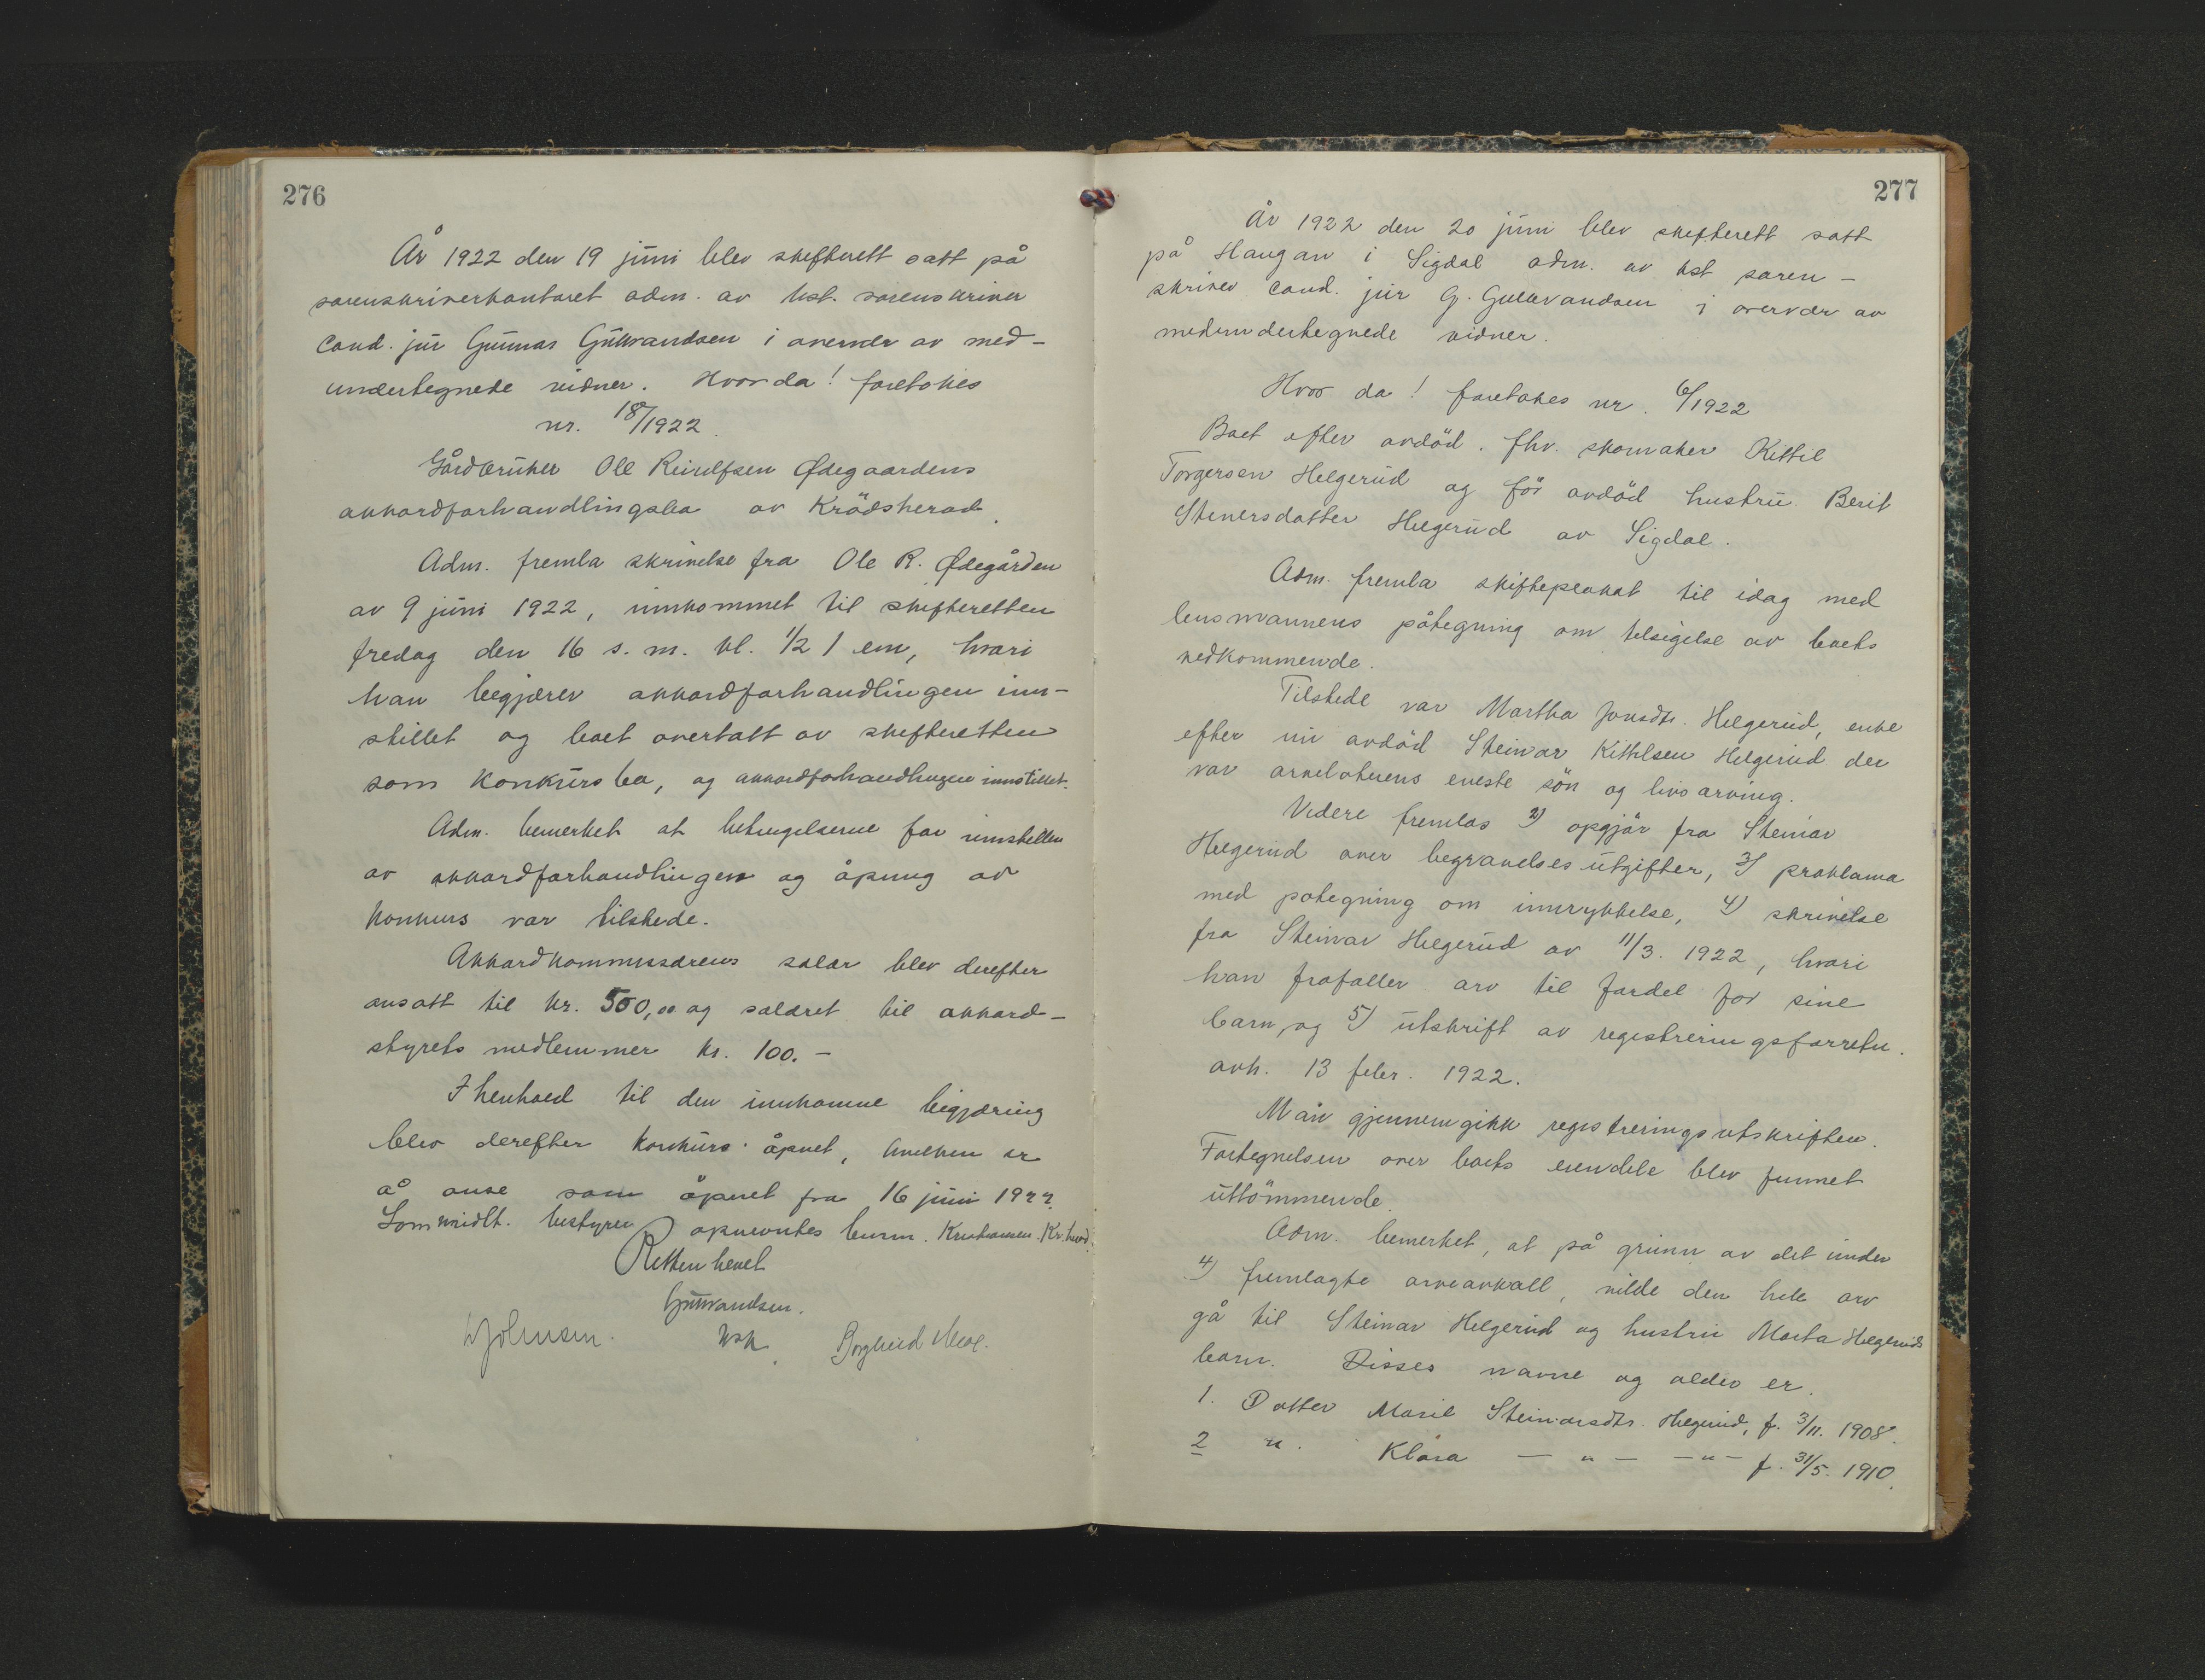 276
År 1922 den 19 juni blev skifterett satt på
sorenskriverkontoret adm. av kst. sorenskriver
cand. jur Gunnar Gulbrandsen i overvær av med-
undertegnede vidner. Hvor da! foretokes
nr. 18/1922.
Gårdbruker Ole Reiulfsen Ødegaardens
akkordforhandlingsbo av Krödsherad.
Adm. fremla skrivelse fra Ole R. Ødegården
av 9 juni 1922, innkommet til skifteretten
fredag den 16 s. m. kl. 1/2 1 em, hvori
han begjærer akkordforhandlingen inn-
stillet og boet overtatt av skifteretten
som konkursbo, og akkordforhandlingen innstillet.
Adm. bemerket at betingelserne for innstillen
av akkordforhandlingen og åpning av
konkurs var tilstede.
Akkordkommissærens salær blev derefter
ansatt til kr. 500,00 og salæret til akkord-
styrets medlemmer kr. 100.-
I henhold til den innkomne begjæring
blev derefter konkurs åpnet, hvilken er
å anse som åpnet fra 16 juni 1922.
Som midlt. bestyrer opnevntes lensm. Kristiansen. Kr.herad.
Retten hevet
Gulbrandsen.
kst
Johnsen.
Borghild
277
År 1922 den 20 juni blev skifterett satt
på Haugan i Sigdal adm. av kst soren-
skriver cand. jur G. Gulbrandsen i overvær av
medundertegnede vidner.
Hvor da! foretokes nr. 6/1922
Boet efter avdöd. fhv. skomaker Kittil
Torgersen Helgerud og för avdöd hustru Berit
Stenersdatter Helgerud av Sigdal.
Adm. fremla skifteplakat til idag med
lensmannens påtegning om tilsigelse av boets
vedkommende.
Tilstede var Martha Jonsdtr. Helgerud, enke
efter nu avdöd Steinar Kittilsen Helgerud der
var arvelaterens eneste sön og livsarving.
Videre fremlas 2) opgjör fra Steinar
Helgerud over begravelsesutgifter, 3) proklama
med potegning om innrykkelse, 4) skrivelse
fra Steinar Helgerud av 11/3. 1922, hvori
han frafaller arv til fordel for sine
barn, og 5) utskrift av registreringsforretn.
avh. 13 febr. 1922.
Man gjennemgikk registreringsutskriften.
Fortegnelsen over boets eiendele blev funnet
uttömmende.
Adm. bemerket, at på grunn av det under
4) fremlagte arveavkall, vilde den hele arv
gå til Steinar Helgerud og hustru Marta Helgeruds
barn. Disses navne og alder er.
1. Datter Maril Steinarsdtr. Helgerud, f. 3/11. 1908.
2 " . Klara - " - - " - f. 31/5. 1910.